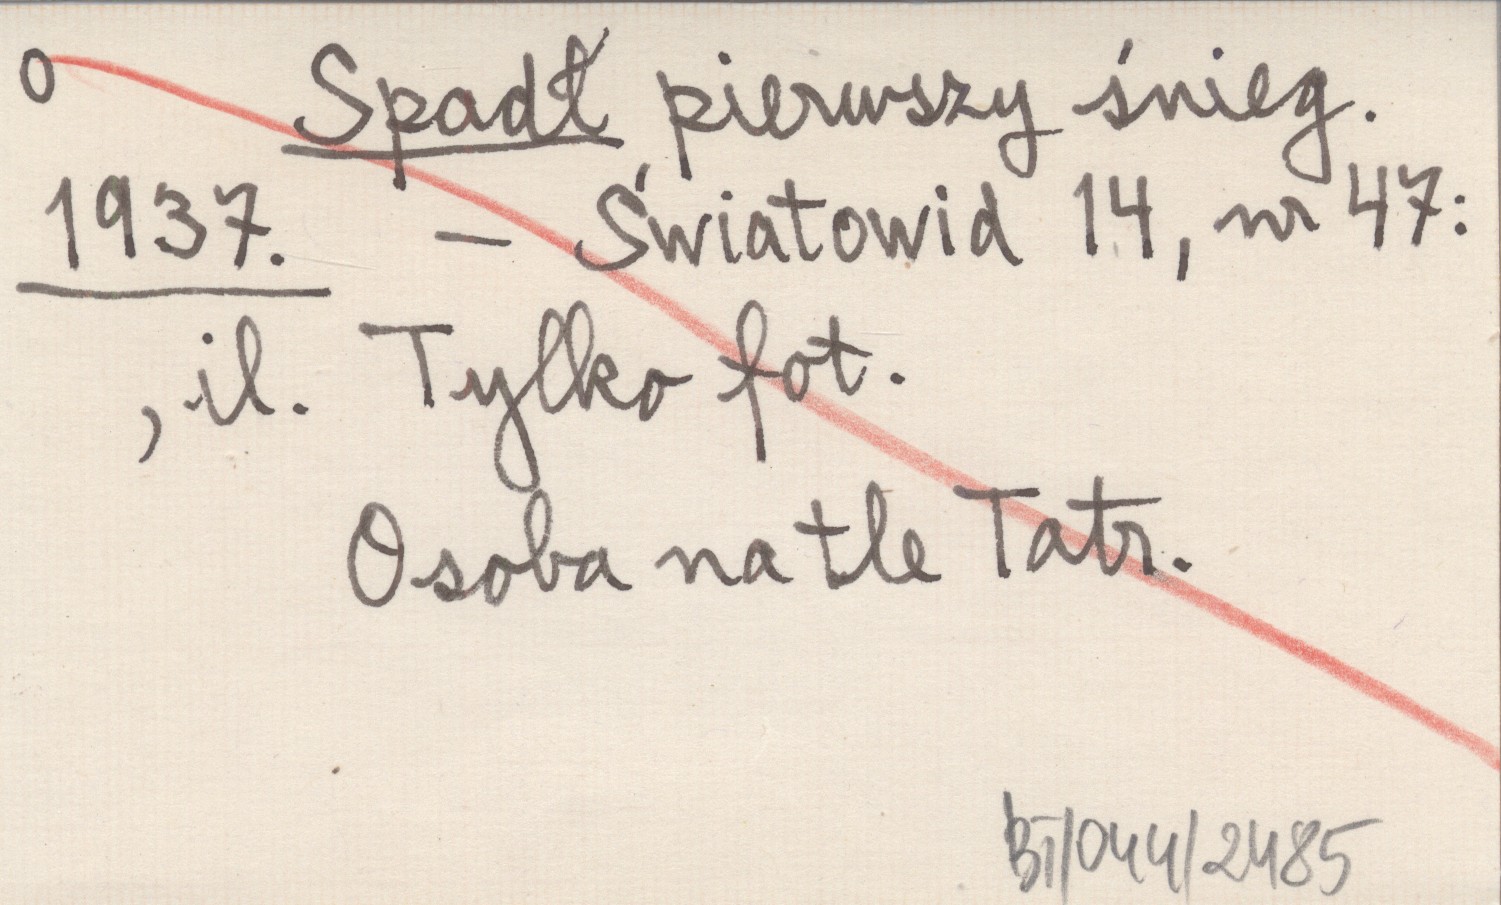 0 Spadł pierwszy śnieg.
1937. – Światowid 14, nr 47:
, il. Tylko fot.
Osoba na tle Tatr.
BT/044/2485